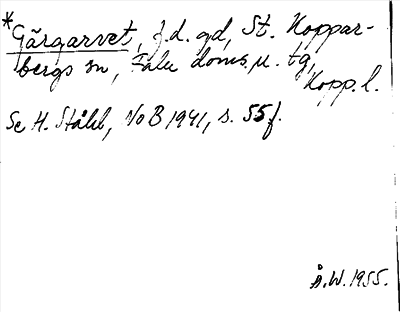 *Gårgarvet, f.d. gd, St. Koppar-
bergs sn, Falu doms. u. tg,
Kopp. l.
Se H. Ståhl, NoB 1941, s. 55 f.
Å.W. 1955.